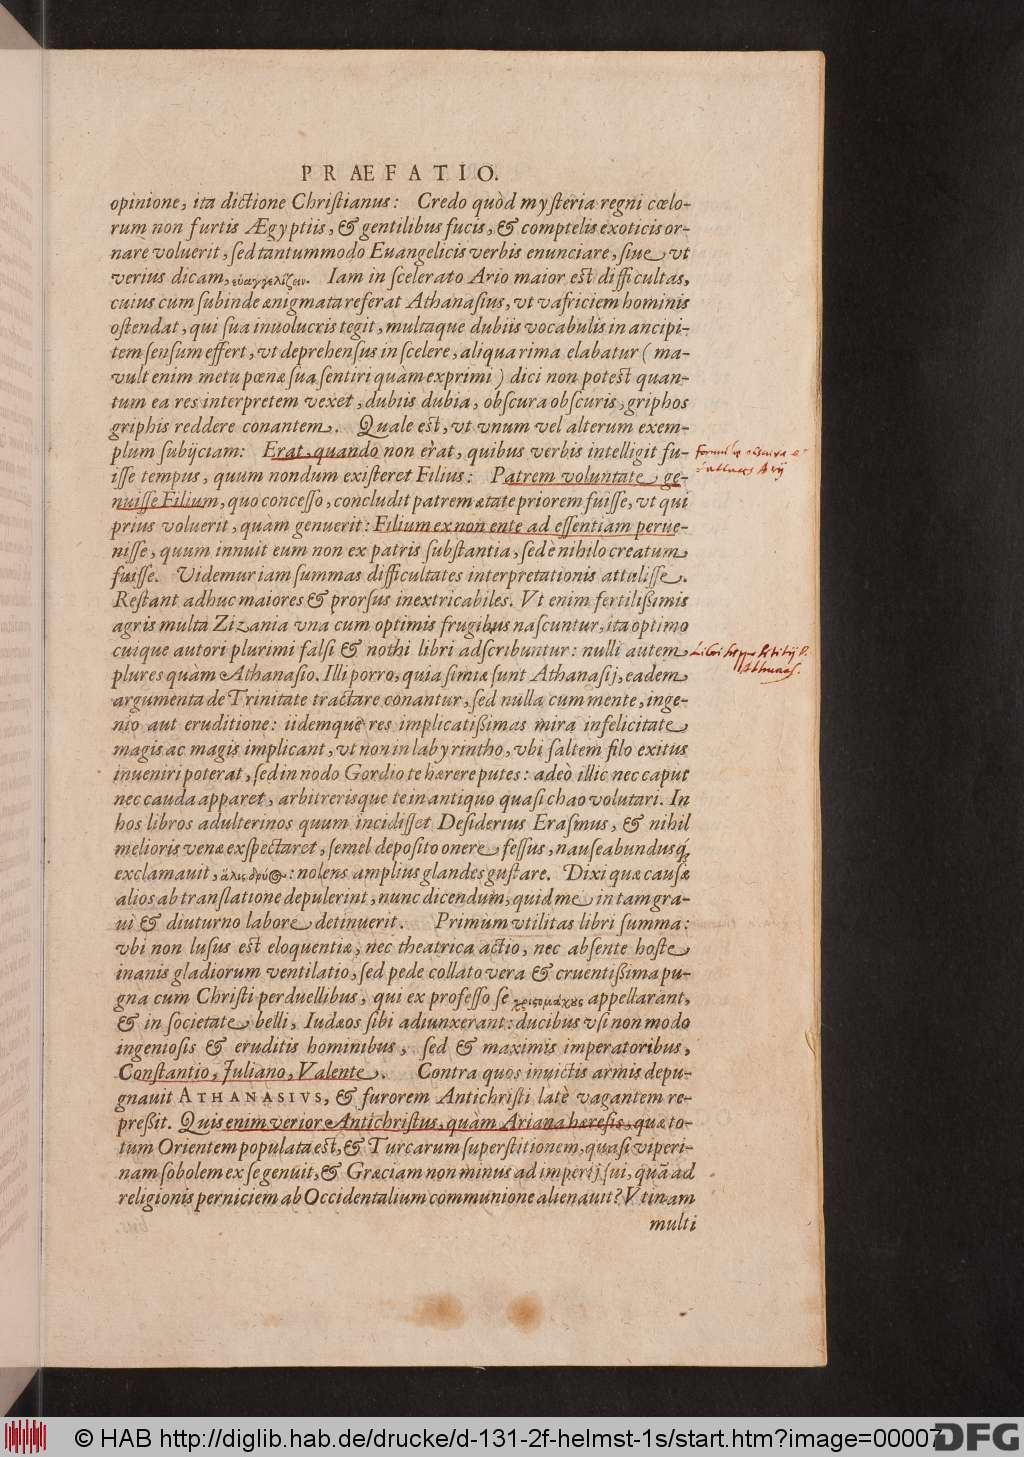 PRAEFATIO.
opinione, ita dictione Christianus: Credo quòd mysteria regni cœlo-
rum non furtis Ægyptiis, & gentilibus fucis, & comptelis exoticis or-
nare voluerit, sed tantummodo Euangelicis verbis enunciare, siue vt
verius dicam, εὐαγγελίζειν. Iam in scelerato Ario maior est difficultas,
cuius cum subinde ænigmata referat Athanasius, vt vafriciem hominis
ostendat, qui sua inuolucris tegit, multaque dubiis vocabulis in ancipi-
tem sensum effert, vt deprehensus in scelere, aliqua rima elabatur (ma-
vult enim metu pœnæ sua sentiri quàm exprimi) dici non potest quan-
tum ea res interpretem vexet, dubiis dubia, obscura obscuris, griphos
griphis reddere conantem. Quale est, vt vnum vel alterum exem-
plum subijciam: Erat, quando non erat, quibus verbis intelligit fu-
isse tempus, quum nondum existeret Filius: Patrem voluntate ge-
nuisse Filium, quo concesso, concludit patrem ætate priorem fuisse, vt qui
prius voluerit, quàm genuerit: Filium ex non ente ad essentiam perue-
nisse, quum innuit eum non ex patris substantia, sed è nihilo creatum
fuisse. Videmur iam summas difficultates interpretationis attulisse.
Restant adhuc maiores & prorsus inextricabiles. Vt enim fertilißimis
agris multa Zizania vna cum optimis frugibus nascuntur, ita optimo
cuique autori plurimi falsi & nothi libri adscribuntur: nulli autem
plures quàm Athanasio. Illi porro, quia simiæ sunt Athanasij, eadem
argumenta de Trinitate tractare conantur, sed nulla cum mente, inge-
nio aut eruditione: iidemque res implicatißimas mira infelicitate
magis ac magis implicant, vt non in labyrintho, vbi saltem filo exitus
inueniri poterat, sed in nodo Gordio te hærere putes: adeò illic nec caput
nec cauda apparet, arbitrerisque te in antiquo quasi chao volutari. In
hos libros adulterinos quum incidisset Desiderius Erasmus, & nihil
melioris venæ exspectaret, semel deposito onere fessus, nauseabundusq;
exclamauit, ἅλις δρυός: nolens amplius glandes gustare. Dixi quæ causæ
alios ab translatione depulerint, nunc dicendum, quid me in tam gra-
ui & diuturno labore detinuerit. Primum vtilitas libri summa:
vbi non lusus est eloquentiæ, nec theatrica actio, nec absente hoste
inanis gladiorum ventilatio, sed pede collato vera & cruentißima pu-
gna cum Christi perduellibus, qui ex professo se χριστομάχους appellarant,
& in societate belli, Iudæos sibi adiunxerant: ducibus vsi non modo
ingeniosis & eruditis hominibus, sed & maximis imperatoribus,
Constantio, Juliano, Valente. Contra quos inuictis armis depu-
gnauit ATHANASIVS, & furorem Antichristi latè vagantem re-
preßit. Quis enim verior Antichristus, quàm Ariana hæresis, quæ to-
tum Orientem populata est, & Turcarum superstitionem, quasi viperi-
nam sobolem ex se genuit, & Græciam non minus ad imperij sui, quã ad
religionis perniciem ab Occidentalium communione alienauit? Vtinam
multi
Arij
Athanas.
© HAB http://diglib.hab.de/drucke/d-131-2f-helmst-1s/start.htm?image=00007
DFG